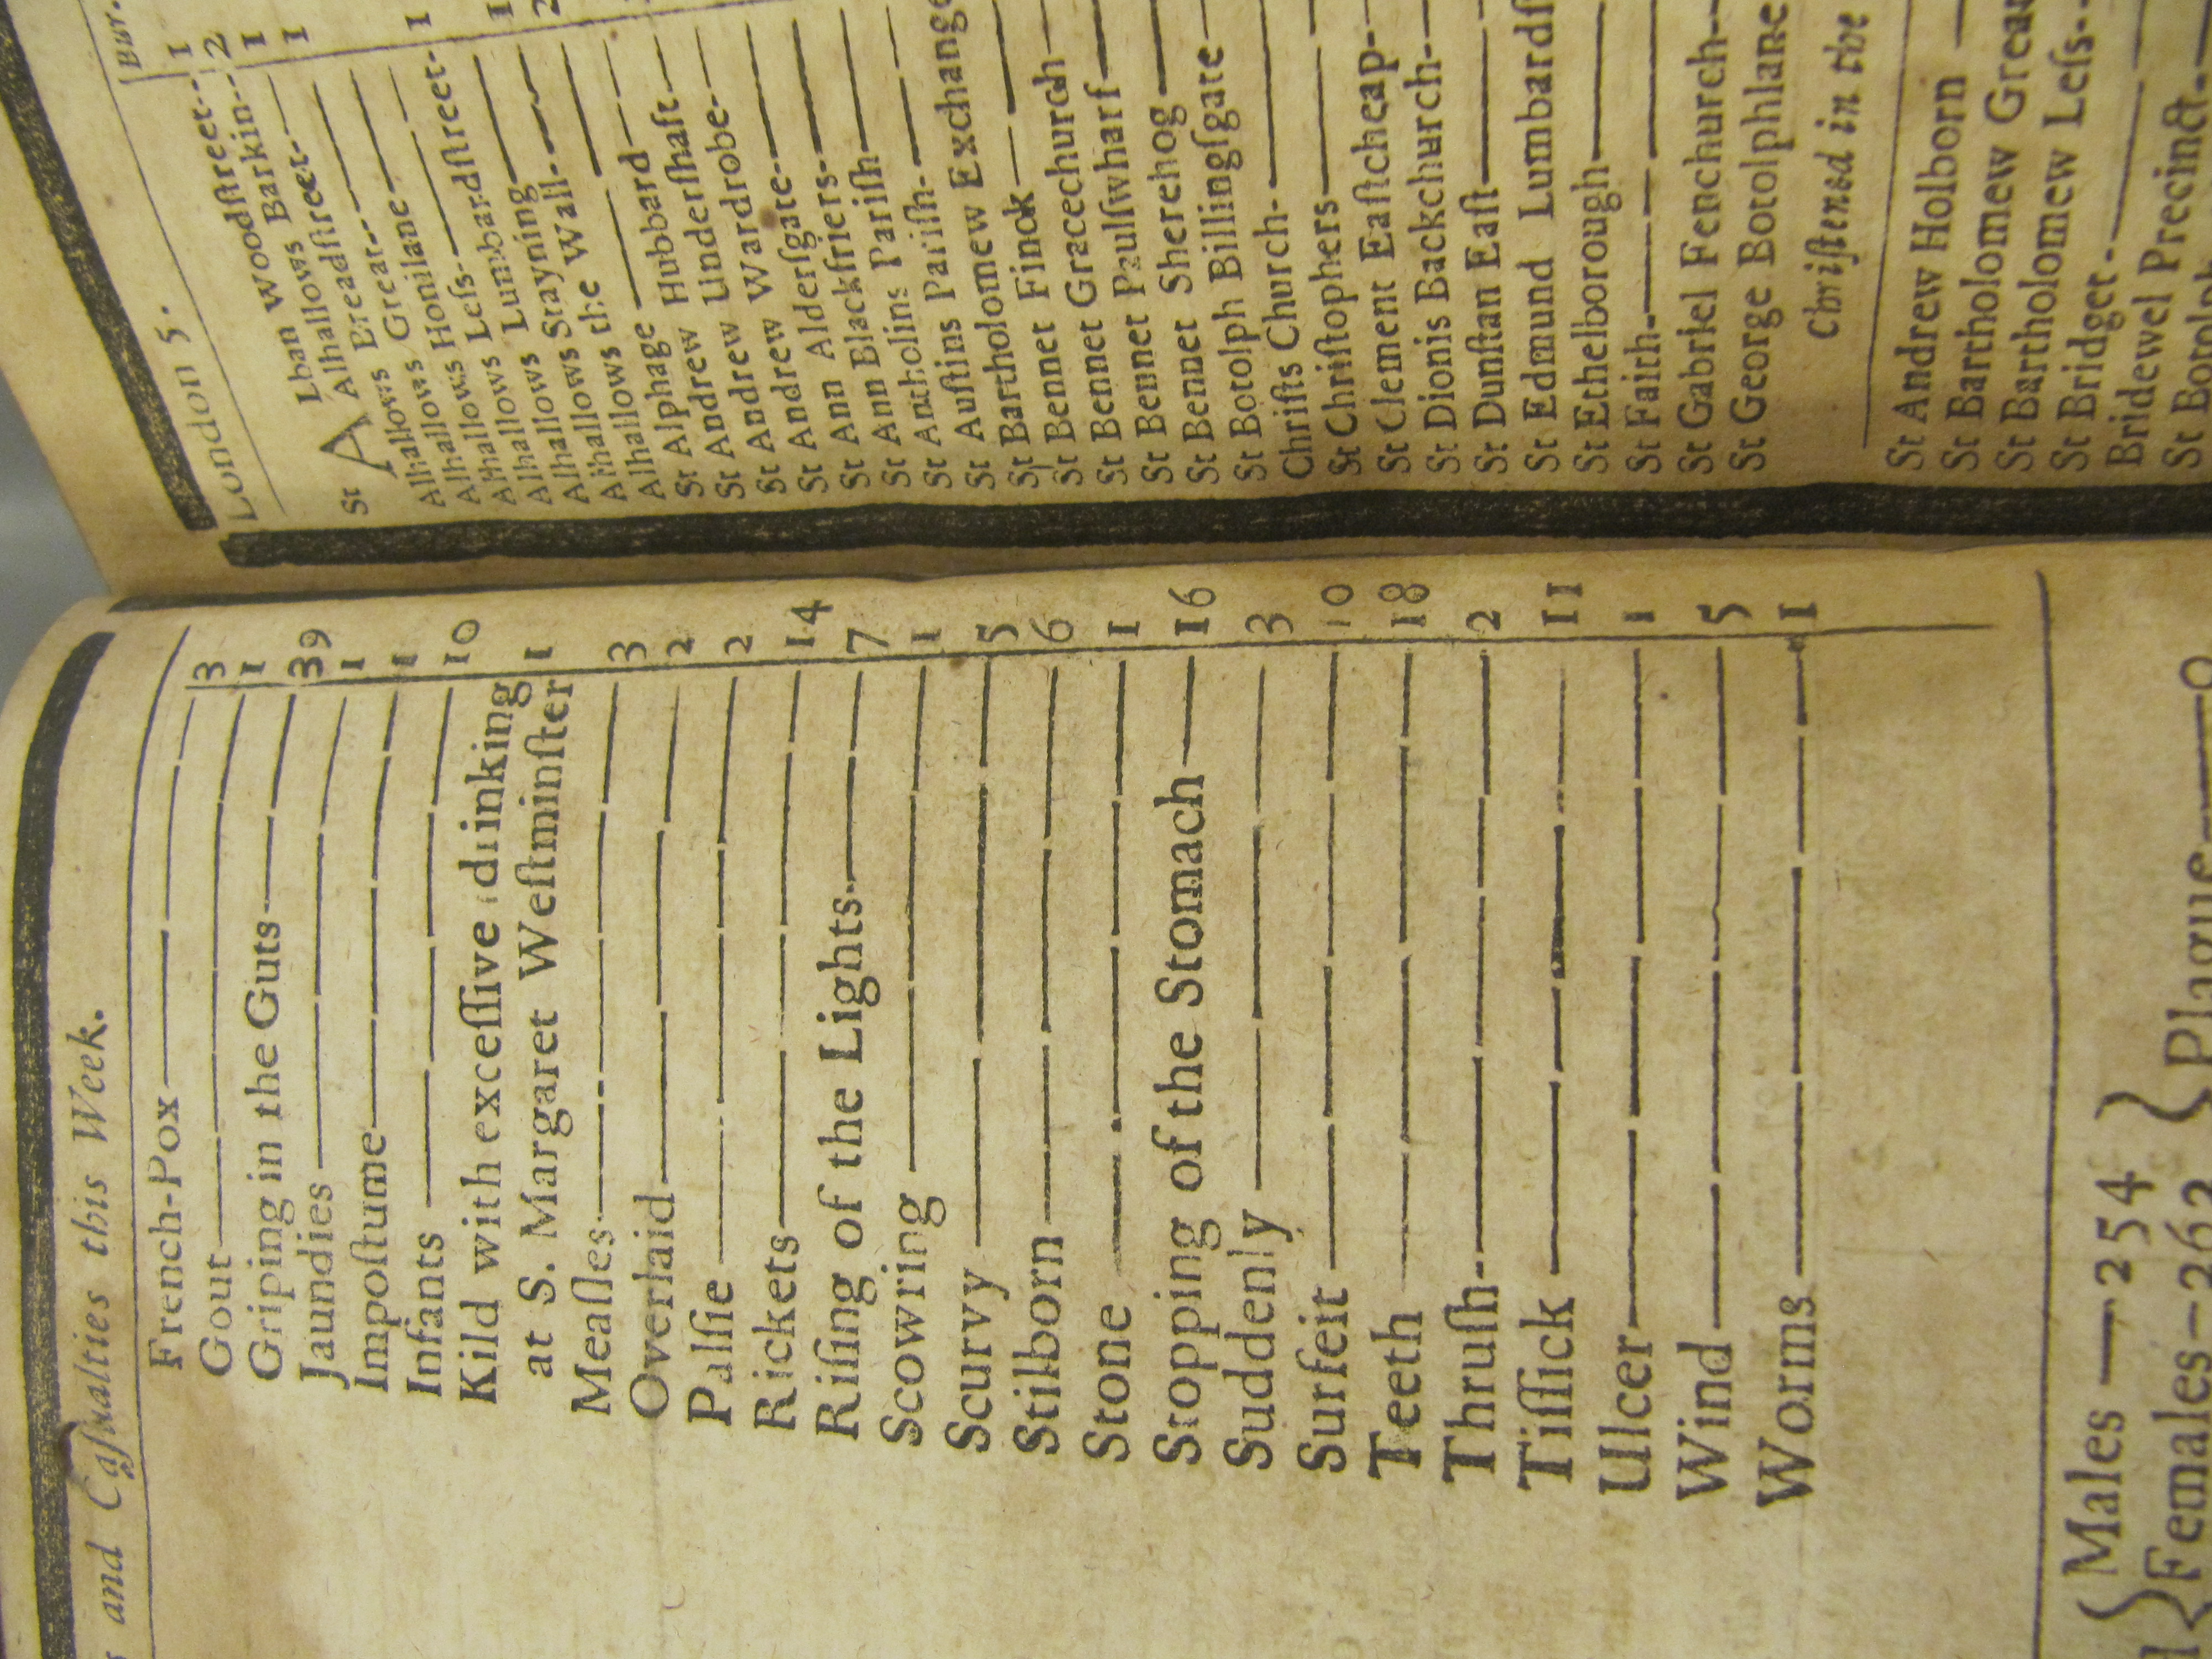 and Caſualties this Week.
French-Pox 3
Gout 1
Griping in the Guts 39
Jaundies 1
Impoſtume 1
Infants 10
Kild with exceſſive drinking
at S. Margaret Weſtminſter 1
Meaſles 3
Overlaid 2
Palſie 2
Rickets 14
Riſing of the Lights 7
Scowring 1
Scurvy 5
Stilborn 6
Stone 1
Stopping of the Stomach 16
Suddenly 3
Surfeit 10
Teeth 18
Thruſh 2
Tiſſick 11
Ulcer 1
Wind 5
Worms 1
Males — 254
Females — 262
Plague — 0
London 5.
Bur.
St ALban Woodſtreet 1
Alhallows Barkin 2
Alhallows Breadſtreet 1
Alhallows Great 1
Alhallows Honilane
Alhallows Leſs
Alhallows Lumbardſtreet 1
Alhallows Stayning 1
Alhallows the Wall 2
St Alphage
St Andrew Hubbard
St Andrew Underſhaft
St Andrew Wardrobe
St Ann Alderſgate
St Ann Blackfriers
St Antholins Pariſh
St Auſtins Pariſh
St Bartholomew Exchange
St Bennet Finck
St Bennet Gracechurch
St Bennet Paulſwharf
St Bennet Sherehog
St Botolph Billingſgate
Chriſts Church
St Chriſtophers
St Clement Eaſtcheap
St Dionis Backchurch
St Dunſtan Eaſt
St Edmund Lumbardſ
St Ethelborough
St Faith
St Gabriel Fenchurch
St George Botolphlane
Chriſtened in the
St Andrew Holborn
St Bartholomew Great
St Bartholomew Leſs
St Bridget
Bridewel Precinct
St Botolph